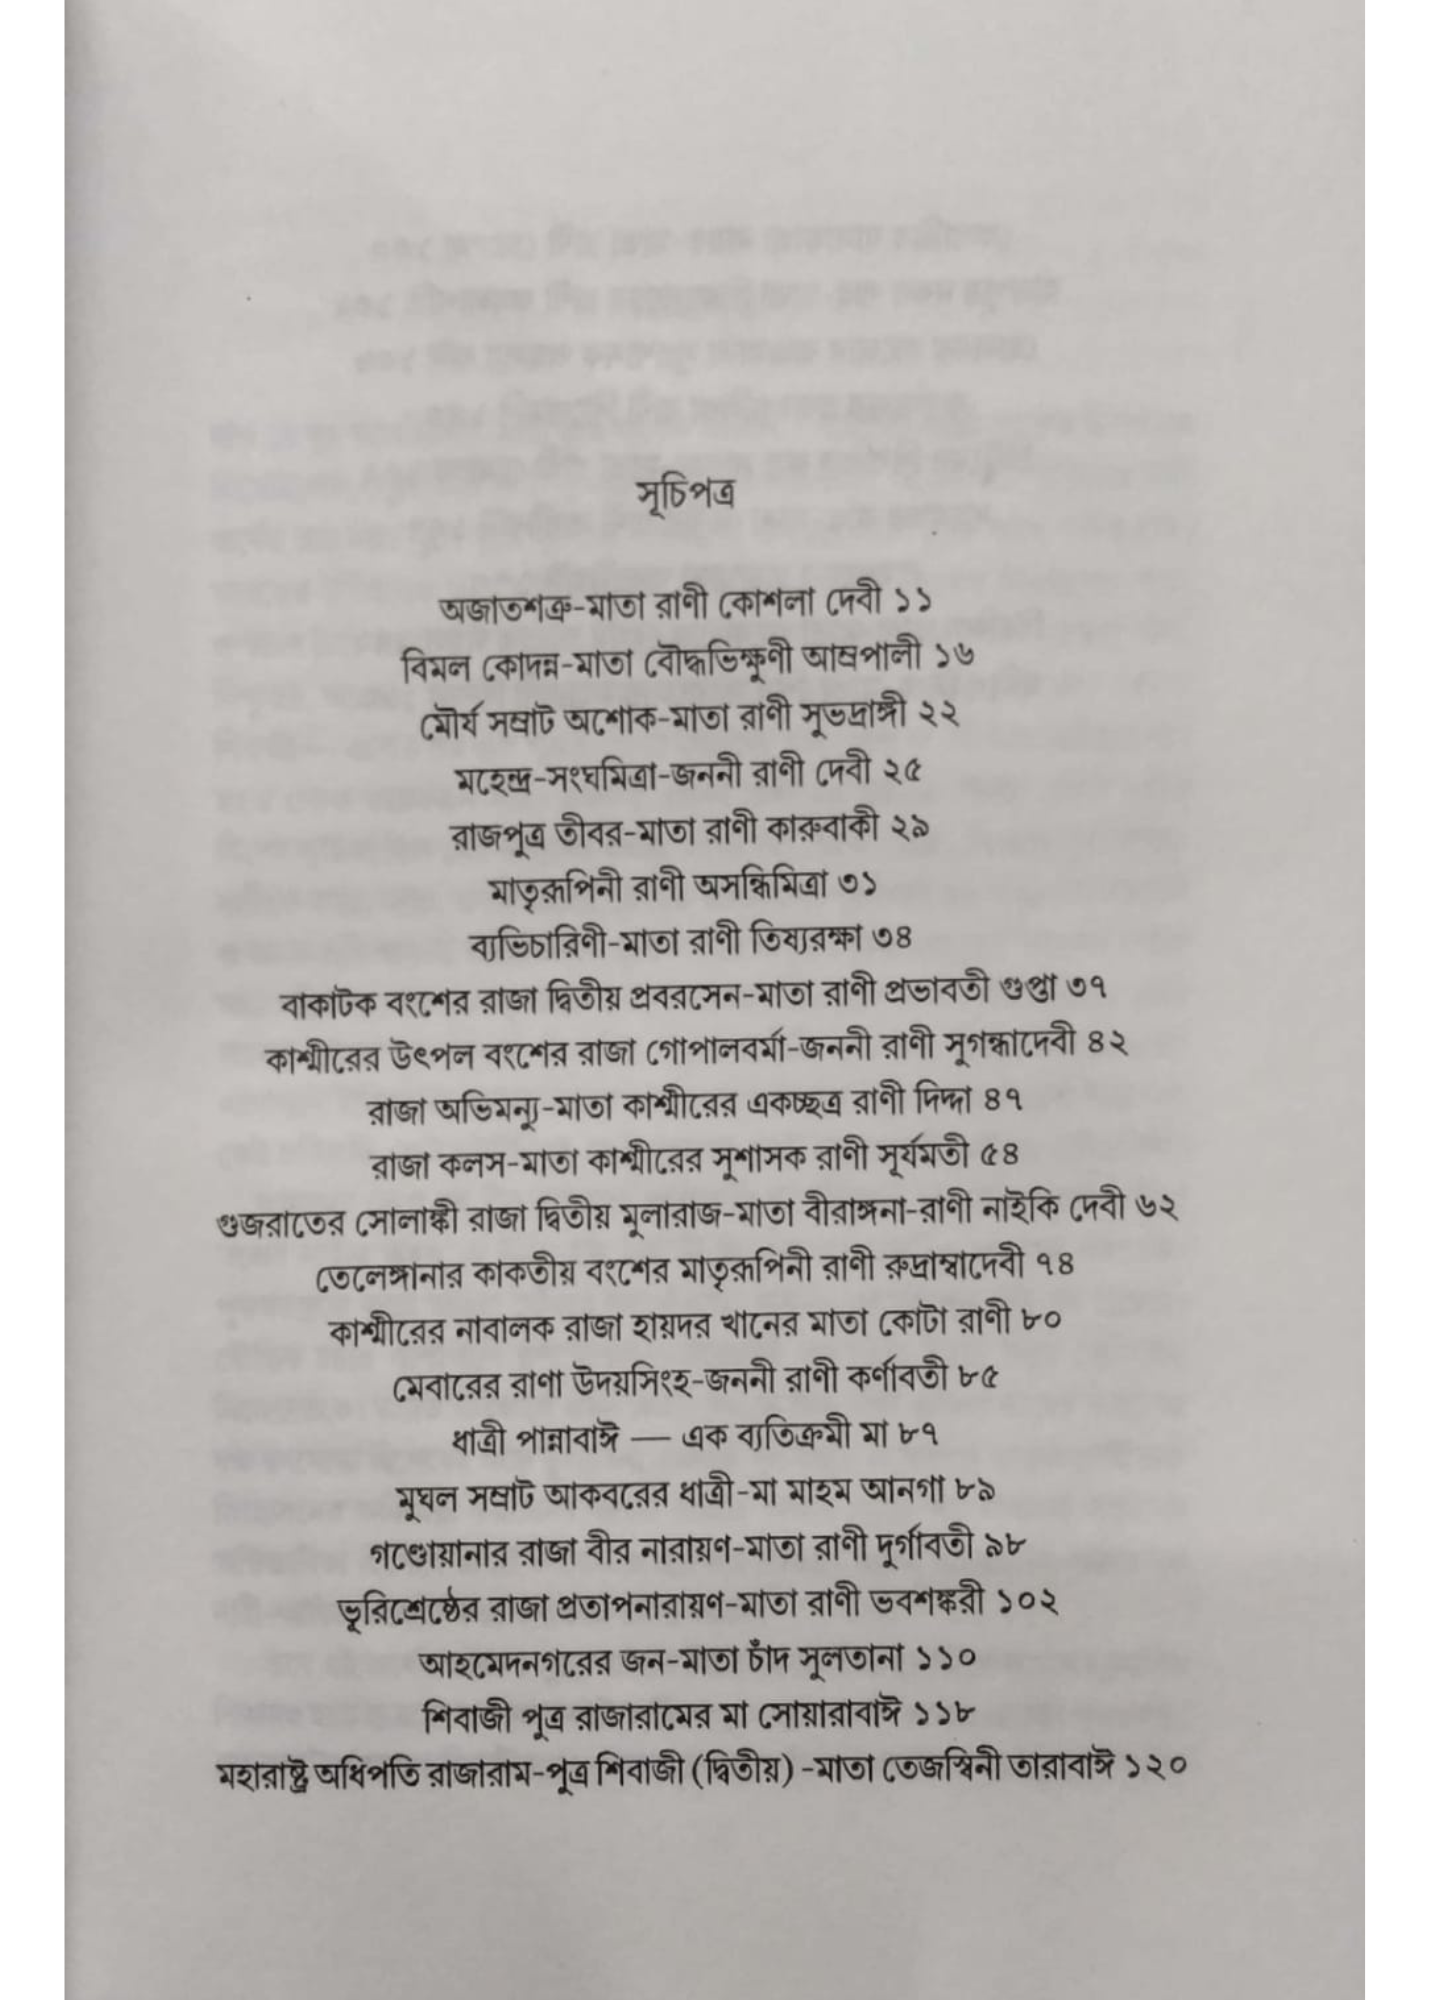 সূচিপত্র
অজাতশত্রু-মাতা রাণী কোশলা দেবী ১১
বিমল কোদন্ন-মাতা বৌদ্ধভিক্ষুণী আম্রপালী ১৬
মৌর্য সম্রাট অশোক-মাতা রাণী সুভদ্রাঙ্গী ২২
মহেন্দ্র-সংঘমিত্রা-জননী রাণী দেবী ২৫
রাজপুত্র তীবর-মাতা রাণী কারুবাকী ২৯
মাতৃরূপিনী রাণী অসন্ধিমিত্রা ৩১
ব্যভিচারিণী-মাতা রাণী তিষ্যরক্ষা ৩৪
বাকাটক বংশের রাজা দ্বিতীয় প্রবরসেন-মাতা রাণী প্রভাবতী গুপ্তা ৩৭
কাশ্মীরের উৎপল বংশের রাজা গোপালবর্মা-জননী রাণী সুগন্ধাদেবী ৪২
রাজা অভিমন্যু-মাতা কাশ্মীরের একচ্ছত্র রাণী দিদ্দা ৪৭
রাজা কলস-মাতা কাশ্মীরের সুশাসক রাণী সূর্যমতী ৫৪
গুজরাতের সোলাঙ্কী রাজা দ্বিতীয় মুলারাজ-মাতা বীরাঙ্গনা-রাণী নাইকি দেবী ৬২
তেলেঙ্গানার কাকতীয় বংশের মাতৃরূপিনী রাণী রুদ্রাম্বাদেবী ৭৪
কাশ্মীরের নাবালক রাজা হায়দর খানের মাতা কোটা রাণী ৮০
মেবারের রাণা উদয়সিংহ-জননী রাণী কর্ণাবতী ৮৫
ধাত্রী পান্নাবাঈ — এক ব্যতিক্রমী মা ৮৭
মুঘল সম্রাট আকবরের ধাত্রী-মা মাহম আনগা ৮৯
গণ্ডোয়ানার রাজা বীর নারায়ণ-মাতা রাণী দুর্গাবতী ৯৮
ভূরিশ্রেষ্ঠের রাজা প্রতাপনারায়ণ-মাতা রাণী ভবশঙ্করী ১০২
আহমেদনগরের জন-মাতা চাঁদ সুলতানা ১১০
শিবাজী পুত্র রাজারামের মা সোয়ারাবাঈ ১১৮
মহারাষ্ট্র অধিপতি রাজারাম-পুত্র শিবাজী (দ্বিতীয়) -মাতা তেজস্বিনী তারাবাঈ ১২০